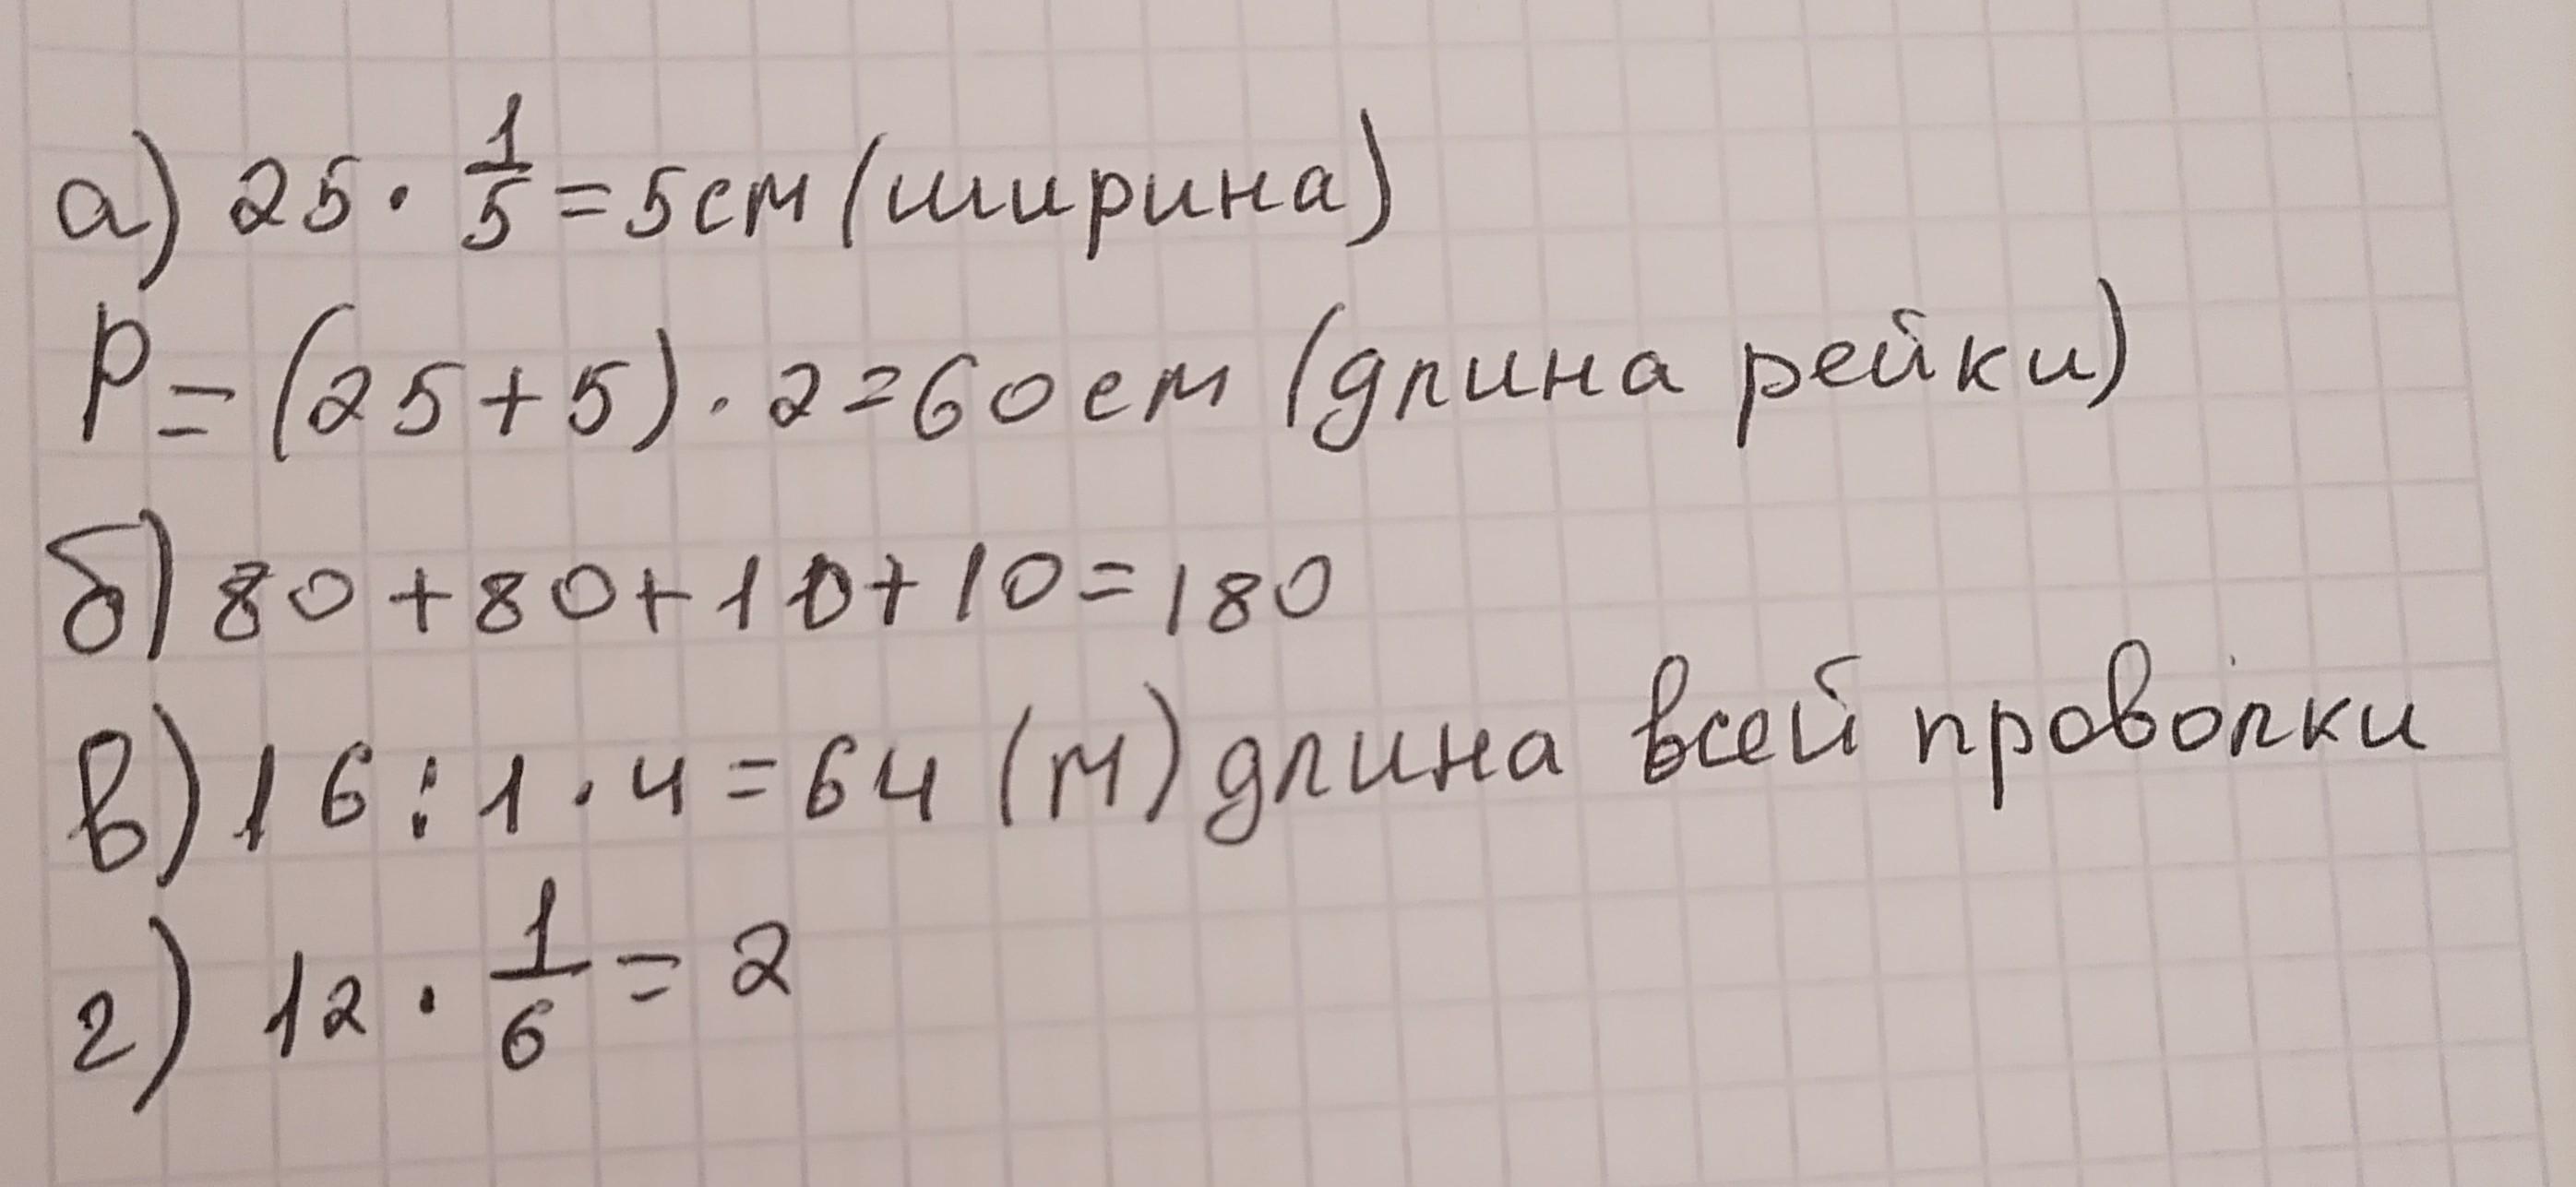 а) 25 · 1/5 = 5 см (ширина)
P = (25 + 5) · 2 = 60 см (длина рейки)
б) 80 + 80 + 10 + 10 = 180
в) 16 : 1 · 4 = 64 (м) длина всей проволки
г) 12 · 1/6 = 2